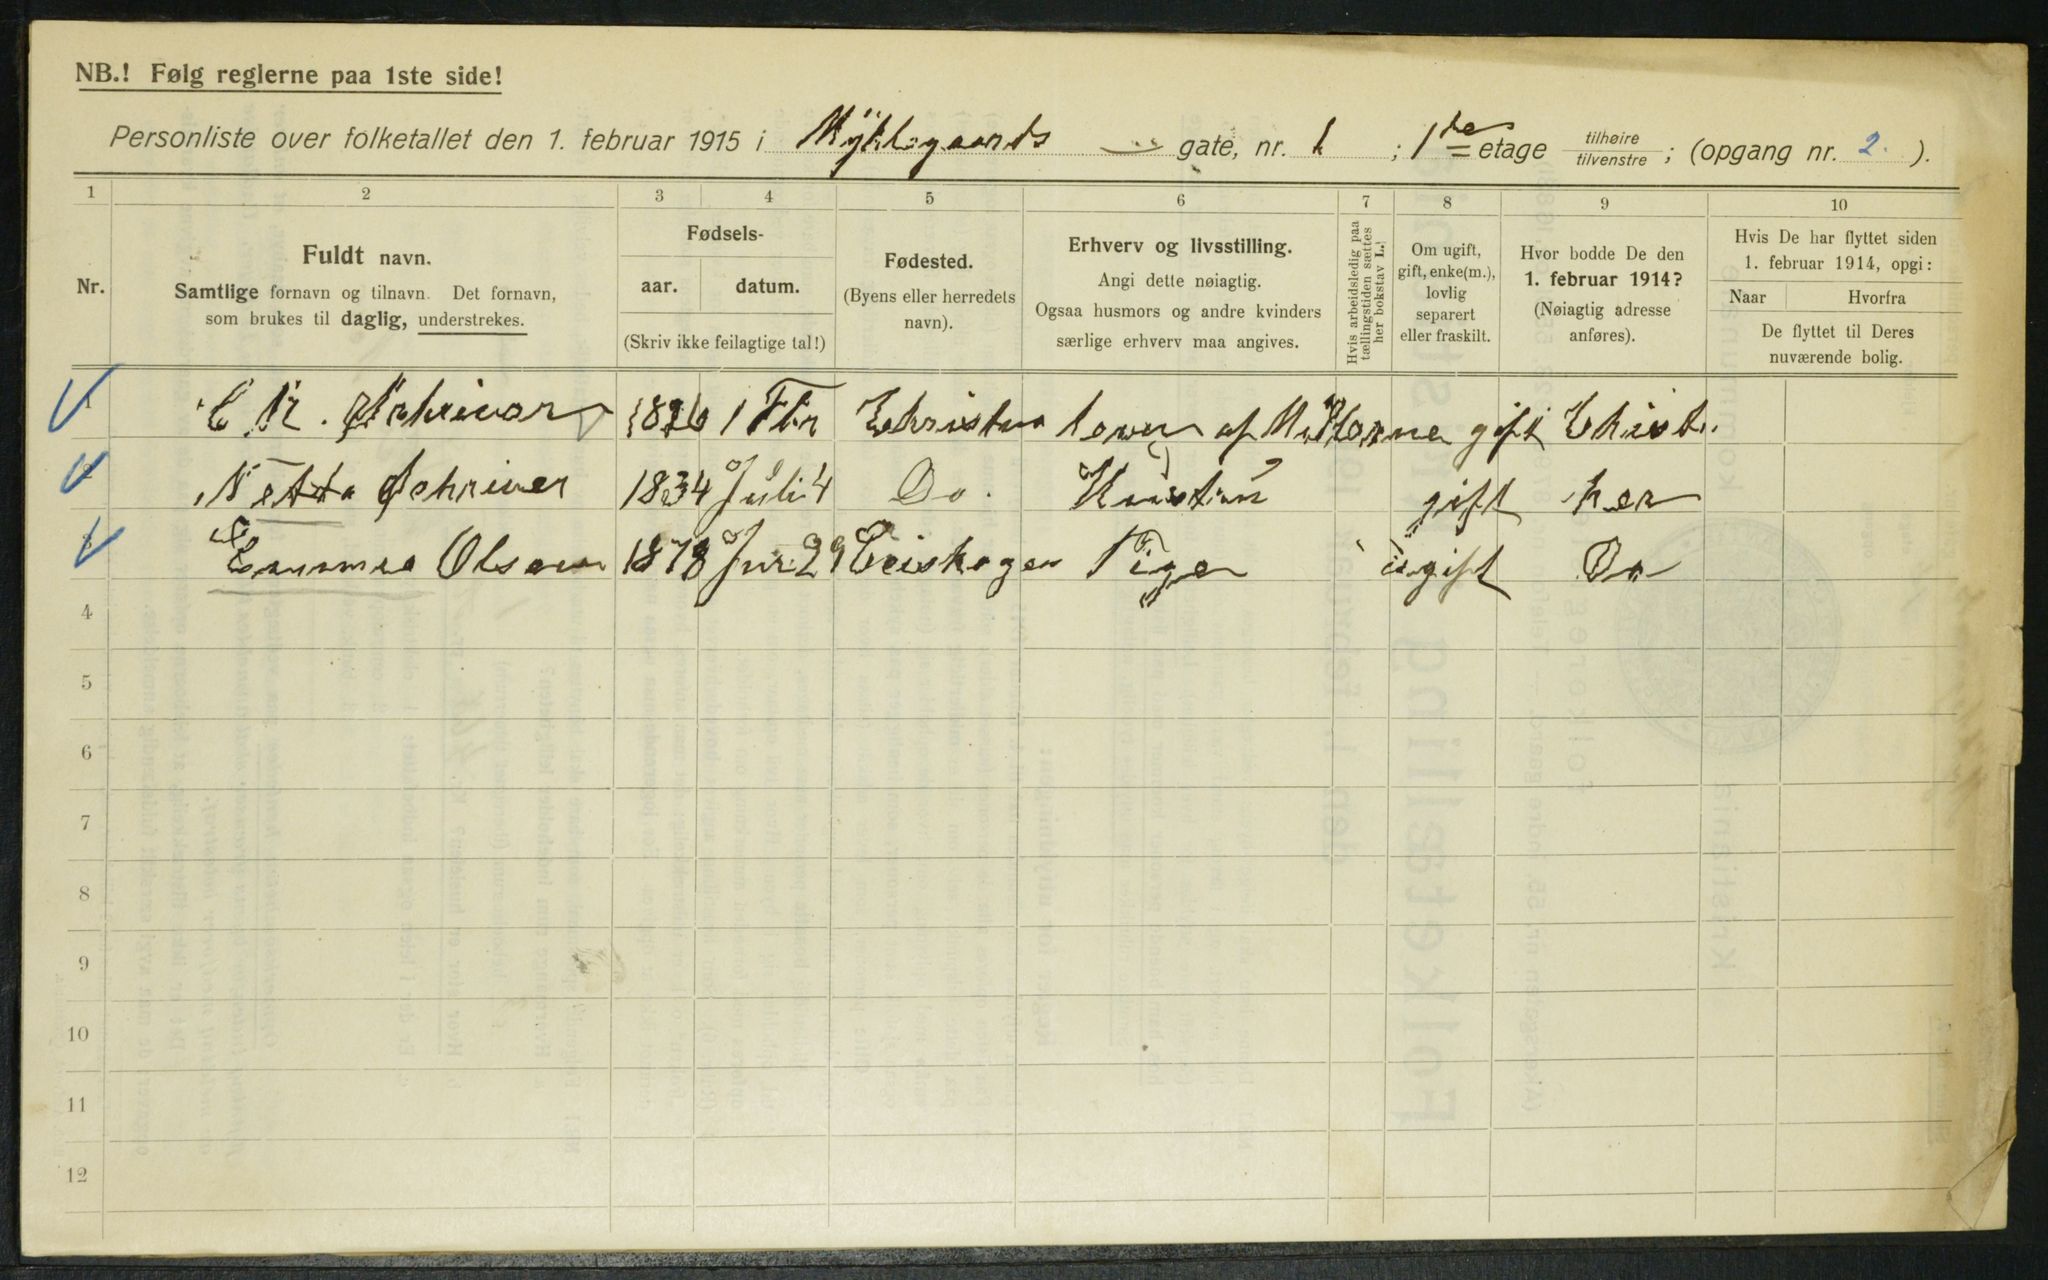 NB.! Følg reglerne paa 1ste side!
Personliste over folketallet den 1. februar 1915 i Myklegaards gate, nr. 1 ; 1ste etage tilhøire tilvenstre ; (opgang nr. 2. ).
1 2 3 4 5 6 7 8 9 10
Nr.
Fuldt navn.
Samtlige fornavn og tilnavn. Det fornavn,
som brukes til daglig, understrekes.
Fødsels-
aar. datum.
(Skriv ikke feilagtige tal!)
Fødested.
(Byens eller herredets
navn).
Erhverv og livsstilling.
Angi dette nøiagtig.
Ogsaa husmors og andre kvinders
særlige erhverv maa angives.
Hvis arbeidsledig paa
tællingstiden sættes
her bokstav L.
Om ugift,
gift, enke(m.),
lovlig
separert
eller fraskilt.
Hvor bodde De den
1. februar 1914?
(Nøiagtig adresse
anføres).
Hvis De har flyttet siden
1. februar 1914, opgi:
Naar Hvorfra
De flyttet til Deres
nuværende bolig.
1 Schriver 1 Fbr af gift Christ.
2 Netta Schriver 1834 Juli 4 Do. gift her
3 Olsen 1878 29 Pige ugift Do
4
5
6
7
8
9
10
11
12